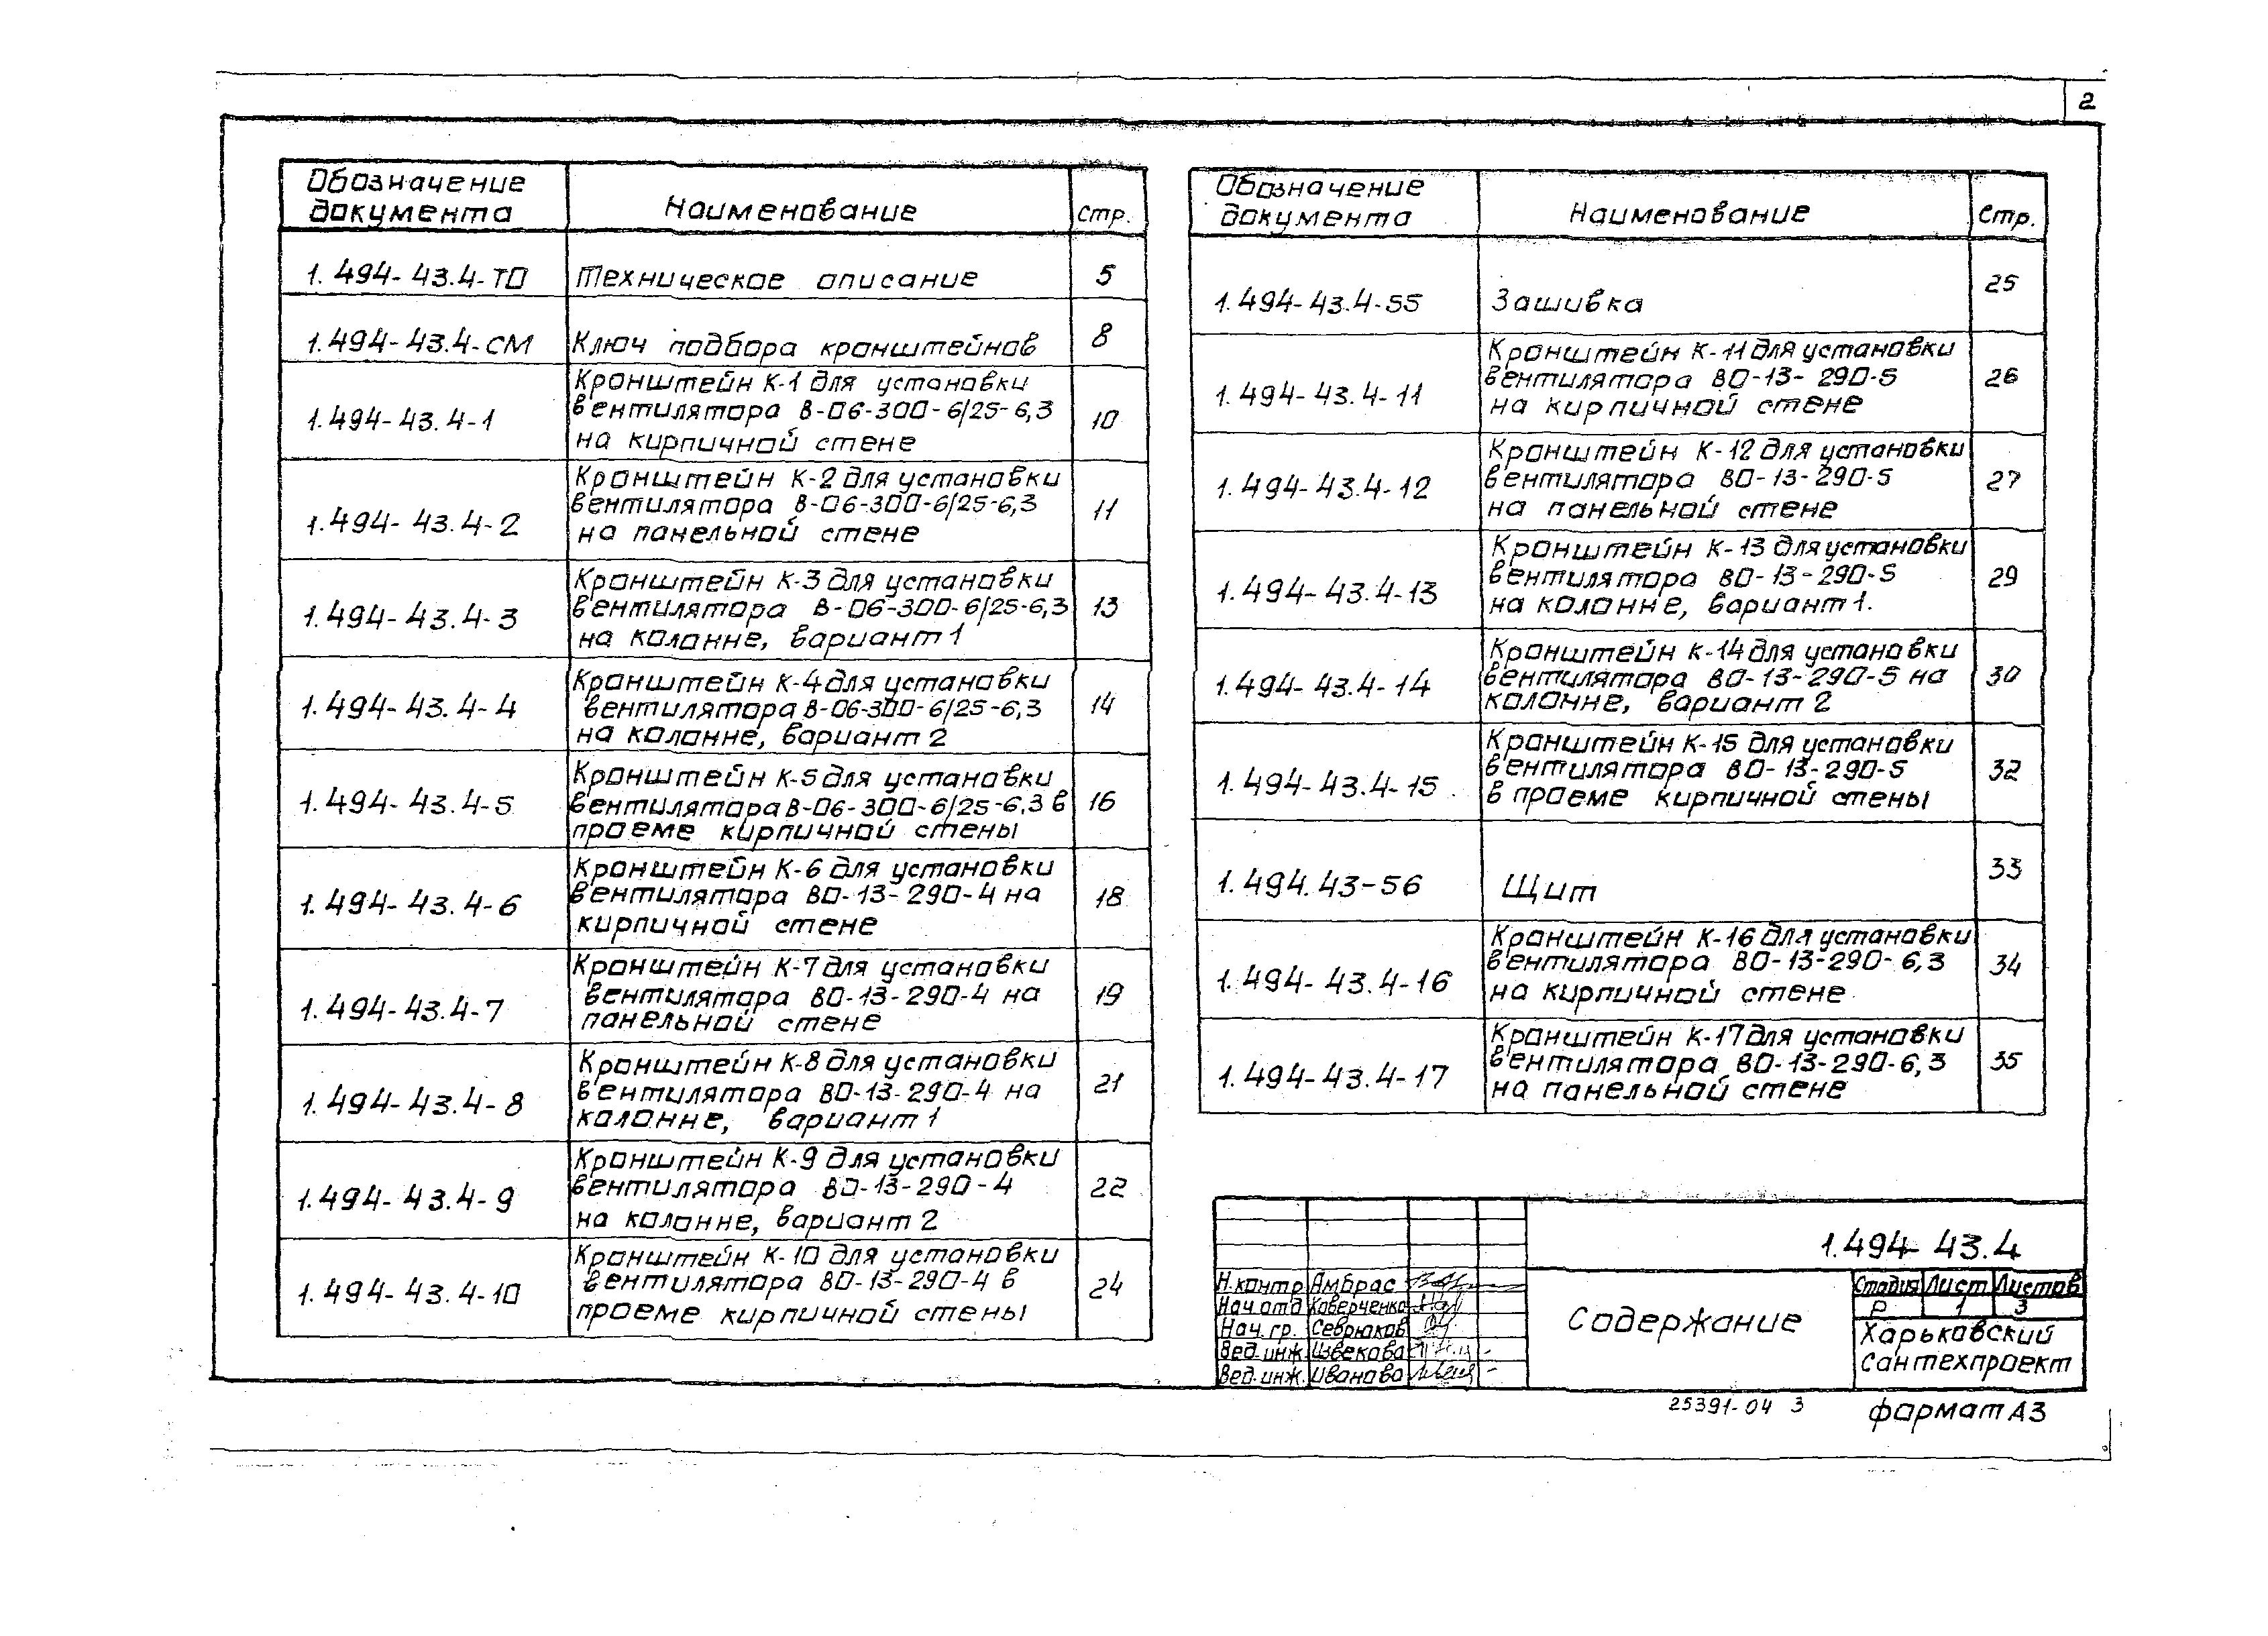 2
Обозначение
документа
Наименование
стр.
1.494-43.4-ТО
Техническое описание
5
1.494-43.4-СМ
Ключ подбора кронштейнов
8
1.494-43.4-1
Кронштейн К-1 для установки
вентилятора В-06-300-6/25-6,3
на кирпичной стене
10
1.494-43.4-2
Кронштейн К-2 для установки
вентилятора В-06-300-6/25-6,3
на панельной стене
11
1.494-43.4-3
Кронштейн К-3 для установки
вентилятора В-06-300-6/25-6,3
на колонне, вариант 1
13
1.494-43.4-4
Кронштейн К-4 для установки
вентилятора В-06-300-6/25-6,3
на колонне, вариант 2
14
1.494-43.4-5
Кронштейн К-5 для установки
вентилятора В-06-300-6/25-6,3 в
проеме кирпичной стены
16
1.494-43.4-6
Кронштейн К-6 для установки
вентилятора ВО-13-290-4 на
кирпичной стене
18
1.494-43.4-7
Кронштейн К-7 для установки
вентилятора ВО-13-290-4 на
панельной стене
19
1.494-43.4-8
Кронштейн К-8 для установки
вентилятора ВО-13-290-4 на
колонне, вариант 1
21
1.494-43.4-9
Кронштейн К-9 для установки
вентилятора ВО-13-290-4
на колонне, вариант 2
22
1.494-43.4-10
Кронштейн К-10 для установки
вентилятора ВО-13-290-4 в
проеме кирпичной стены
24
Обозначение
документа
Наименование
Стр.
1.494-43.4-55
Зашивка
25
1.494-43.4-11
Кронштейн К-11 для установки
вентилятора ВО-13-290-5
на кирпичной стене
26
1.494-43.4-12
Кронштейн К-12 для установки
вентилятора ВО-13-290-5
на панельной стене
27
1.494-43.4-13
Кронштейн К-13 для установки
вентилятора ВО-13-290-5
на колонне, вариант 1.
29
1.494-43.4-14
Кронштейн К-14 для установки
вентилятора ВО-13-290-5 на
колонне, вариант 2
30
1.494-43.4-15
Кронштейн К-15 для установки
вентилятора ВО-13-290-5
в проеме кирпичной стены
32
1.494.43-56
Щит
33
1.494-43.4-16
Кронштейн К-16 для установки
вентилятора ВО-13-290-6,3
на кирпичной стене
34
1.494-43.4-17
Кронштейн К-17 для установки
вентилятора ВО-13-290-6,3
на панельной стене
35
1.494-43.4
Н.контр Амбрас
Нач.отд Коверченко
Нач.гр. Севрюков
Вед.инж. Извекова
Вед.инж. Иванова
Содержание
Стадия Лист Листов
Р 1 3
Харьковский
сантехпроект
25391-04 3
формат А3